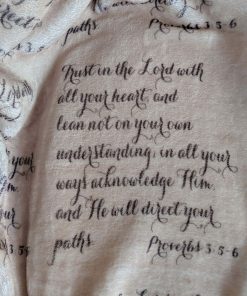 paths Proverbs 3:5-6
Trust in the Lord with
all your heart, and
lean not on your own
understanding, in all your
ways acknowledge Him,
and He will direct your
paths Proverbs 3:5-6